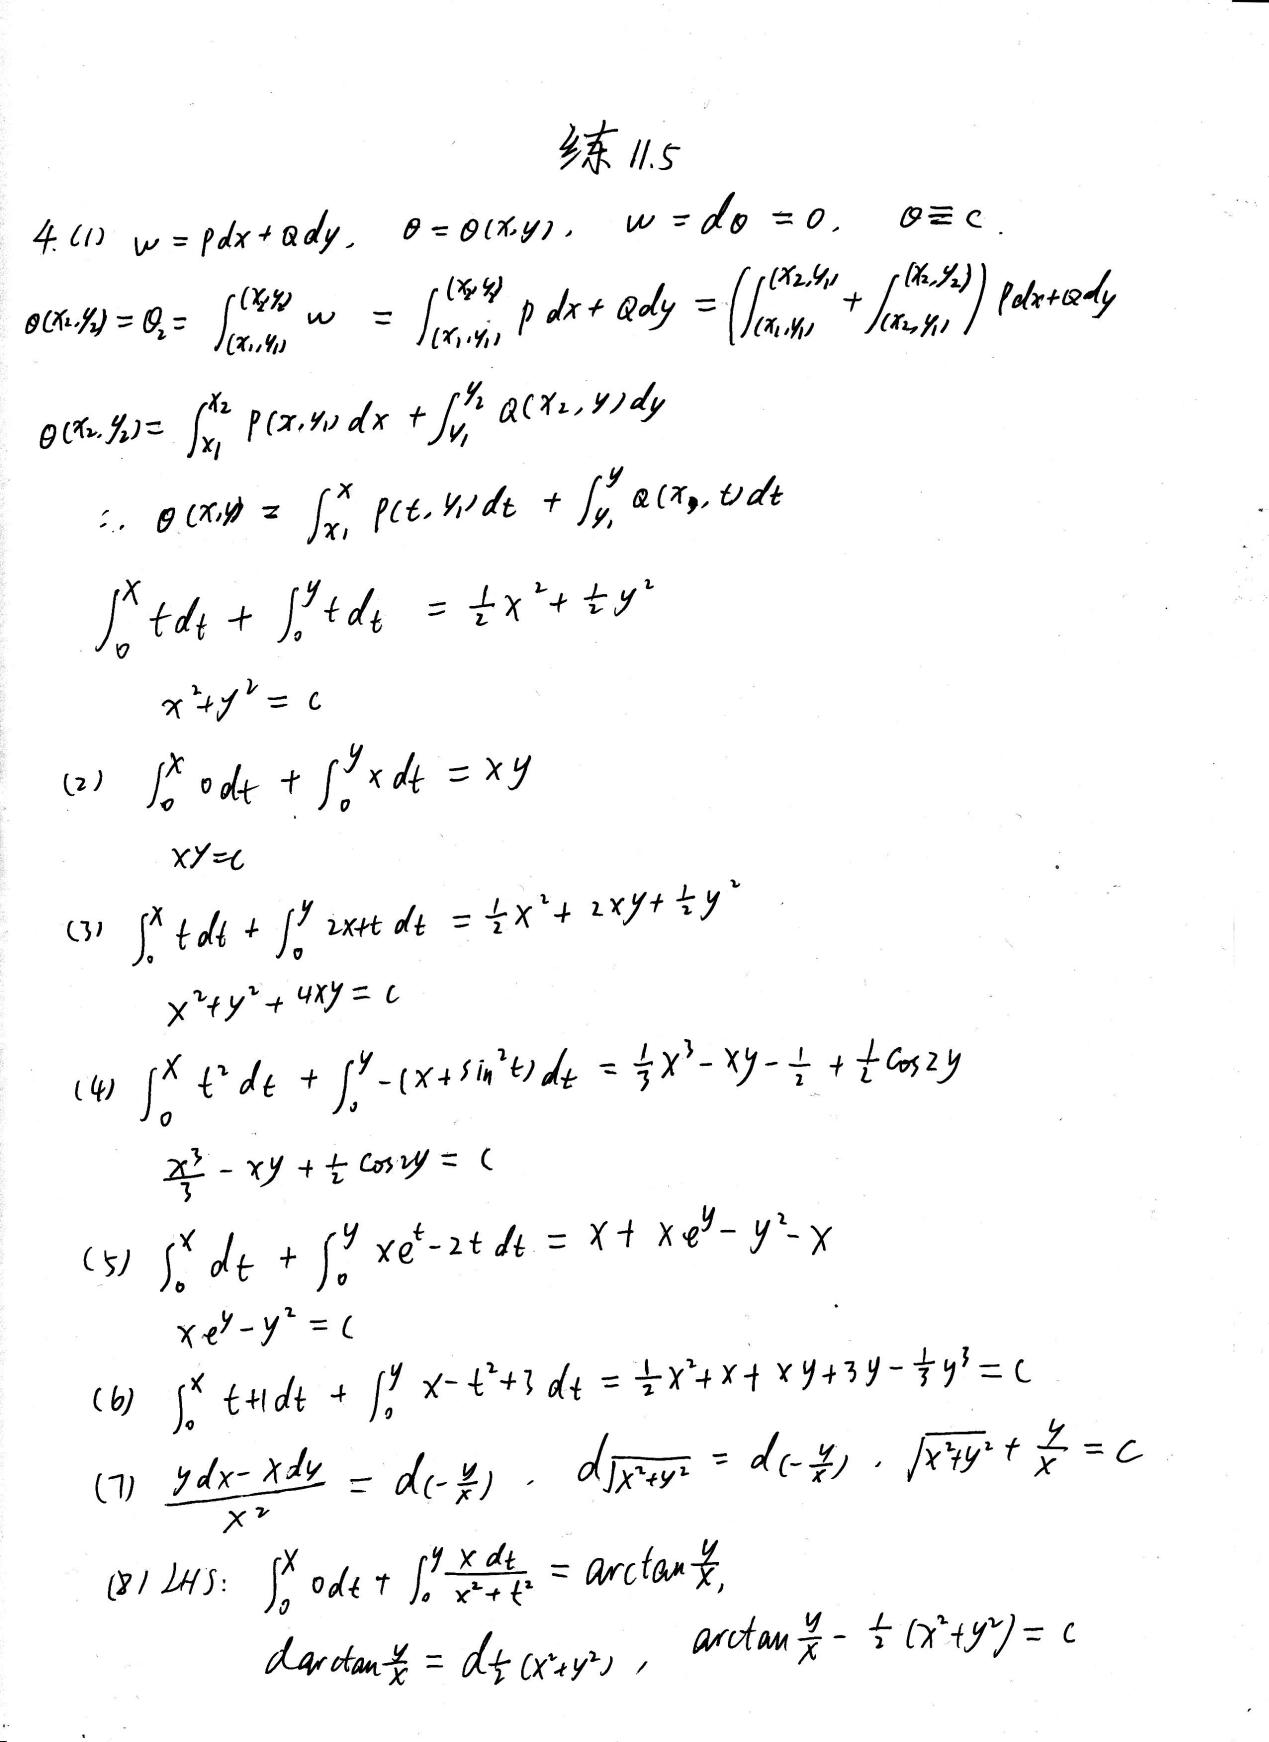 练 11.5
4.(1) w = Pdx + Qdy, θ = θ(x,y), w = dθ = 0, θ ≡ c.
θ(x₂,y₂) = θ₂ = ∫_(x₁,y₁)^(x₂,y₂) w = ∫_(x₁,y₁)^(x₂,y₂) P dx + Qdy = (∫_(x₁,y₁)^(x₂,y₁) + ∫_(x₂,y₁)^(x₂,y₂)) Pdx+Qdy
θ(x₂,y₂) = ∫_x₁^x₂ P(x,y₁) dx + ∫_y₁^y₂ Q(x₂,y)dy
∴ θ(x,y) = ∫_x₁^x P(t,y₁)dt + ∫_y₁^y Q(x,t)dt
∫_0^x tdt + ∫_0^y tdt = ½x² + ½y²
x²+y² = c
(2) ∫_0^x 0dt + ∫_0^y x dt = xy
xy=c
(3) ∫_0^x tdt + ∫_0^y 2x+t dt = ½x² + 2xy + ½y²
x²+y²+4xy = c
(4) ∫_0^x t² dt + ∫_0^y -(x+sin²t)dt = ⅓x³ - xy - ½ + ½cos2y
x³/3 - xy + ½ cos2y = c
(5) ∫_0^x dt + ∫_0^y xeᵗ-2t dt = x + xe^y - y² - x
xe^y - y² = c
(6) ∫_0^x t+1dt + ∫_0^y x-t²+3 dt = ½x²+x+xy+3y-⅓y³ = c
(7) (ydx-xdy)/x² = d(-y/x). d√(x²+y²) = d(-y/x). √(x²+y²) + y/x = c
(8) LHS: ∫_0^x 0dt + ∫_0^y xdt/(x²+t²) = arctan y/x,
darctan y/x = d½(x²+y²), arctan y/x - ½(x²+y²) = c